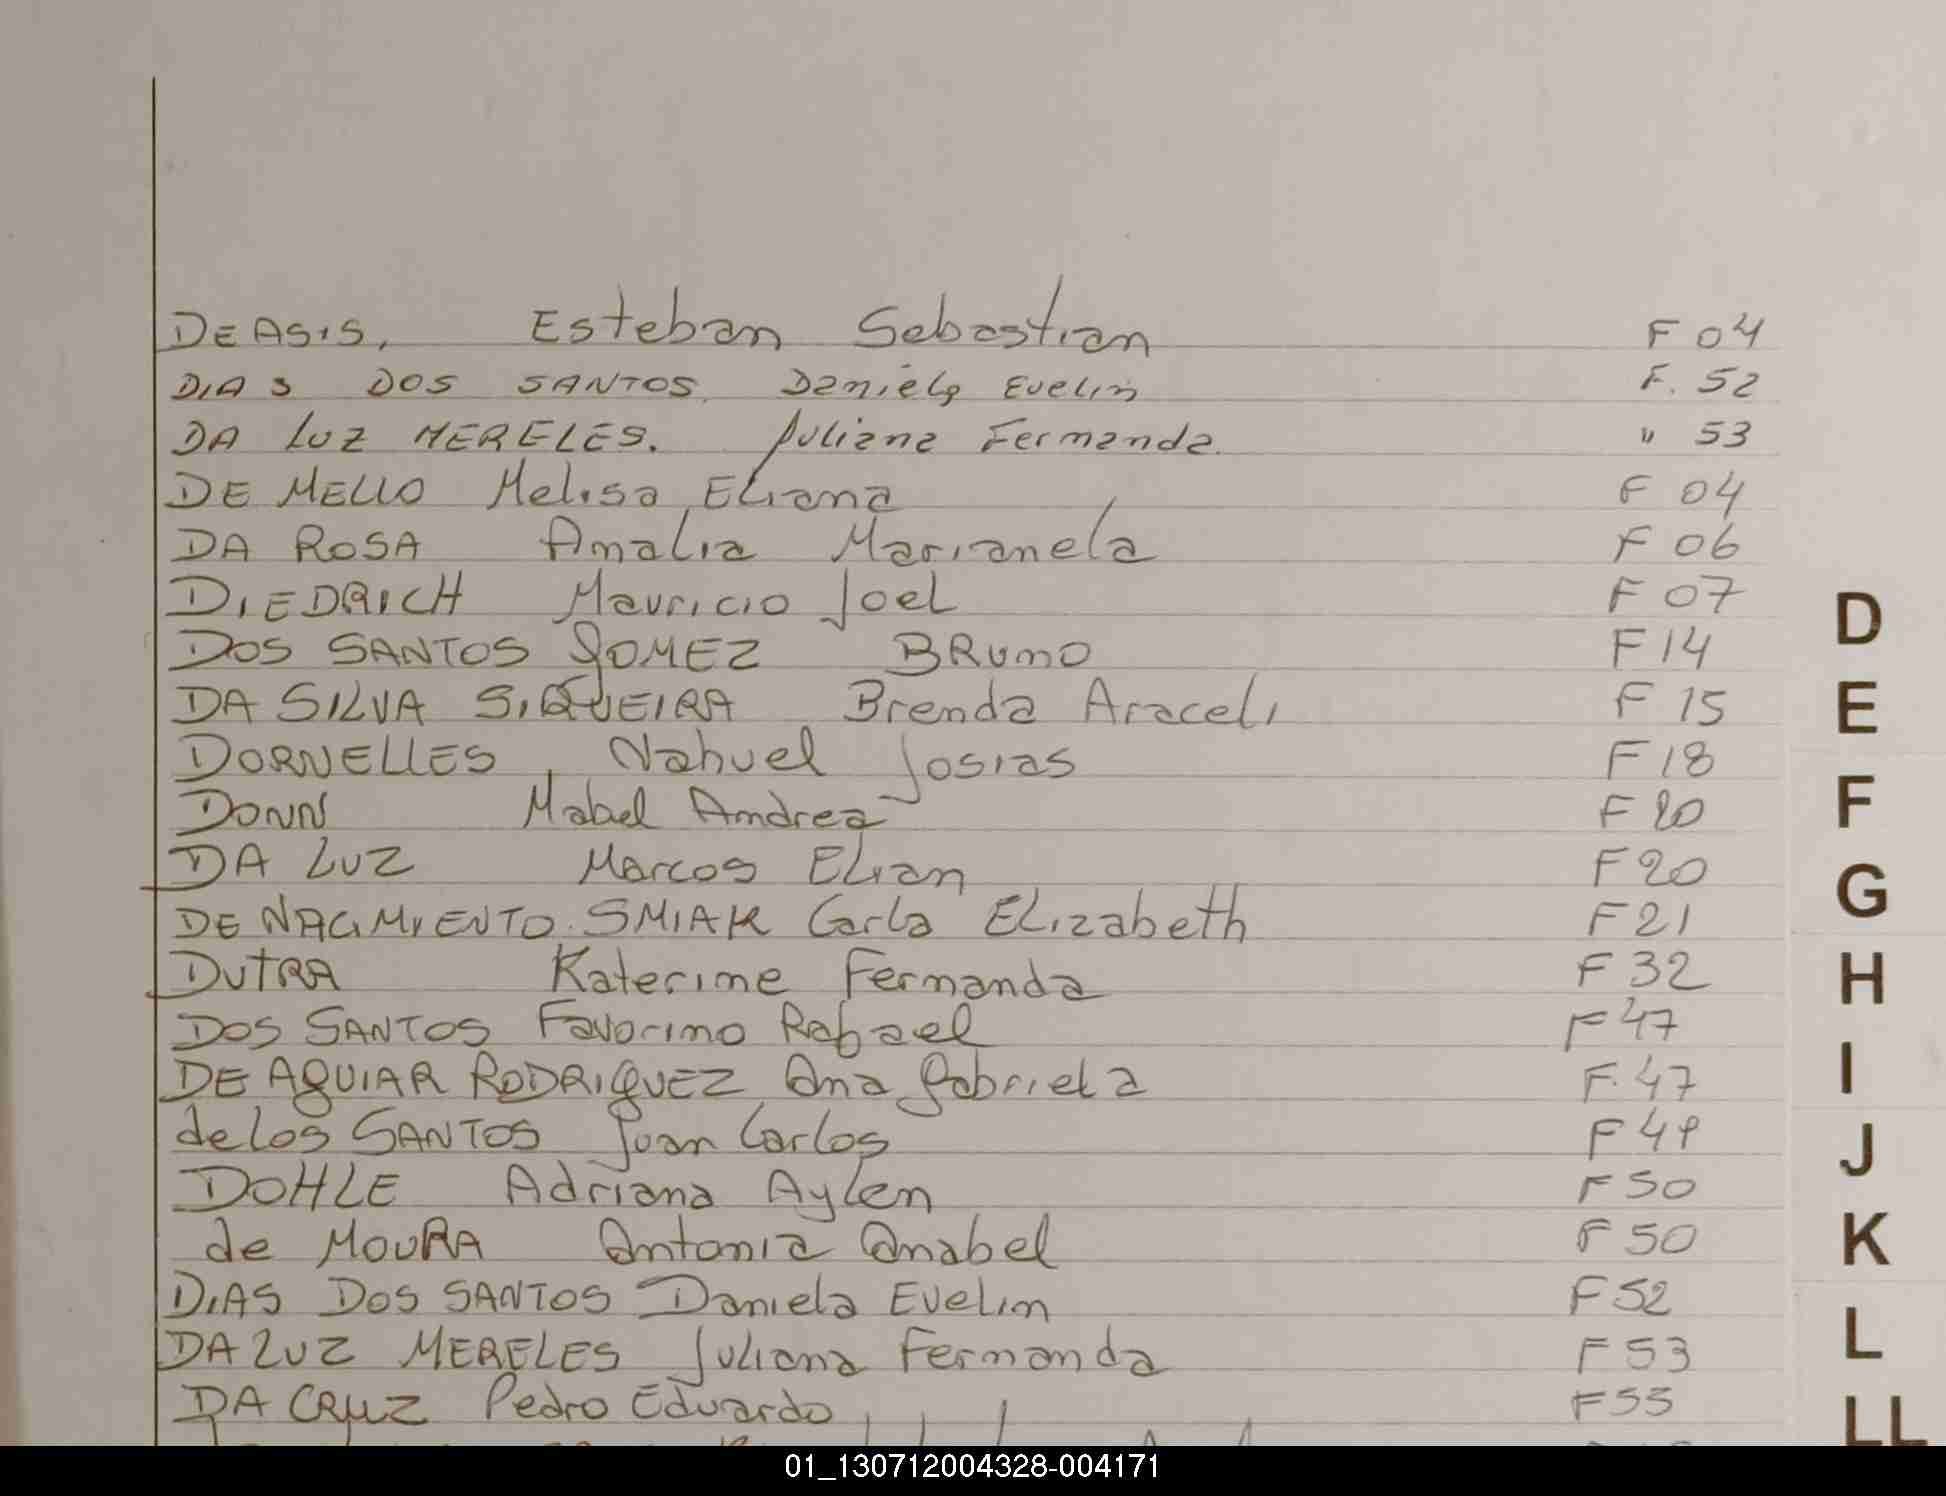 DE ASIS, Esteban Sebastian F 04
DIAS DOS SANTOS. Daniela Evelin F. 52
DA LUZ MERELES. Juliana Fernanda. " 53
DE MELLO Melisa Eliana F 04
DA ROSA Amalia Marianela F 06
DIEDRICH Mauricio Joel F 07
DOS SANTOS GOMEZ BRUNO F 14
DA SILVA SIQUEIRA Brenda Araceli F 15
DORNELLES, Nahuel Josias F 18
DONN Mabel Andrea F 20
DA LUZ Marcos Elian F 20
DE NACIMIENTO SMIAK Carla Elizabeth F 21
DUTRA Katerine Fernanda F 32
DOS SANTOS Favorino Rafael F 47
DE AGUIAR RODRIGUEZ Ana Gabriela F. 47
de los SANTOS Juan Carlos F 49
DOHLE Adriana Aylen F 50
de MOURA Antonia Anabel F 50
DIAS DOS SANTOS Daniela Evelin F 52
DA LUZ MERELES Juliana Fernanda F 53
DA CRUZ Pedro Eduardo F 55
D
E
F
G
H
I
J
K
L
LL
01_130712004328-004171